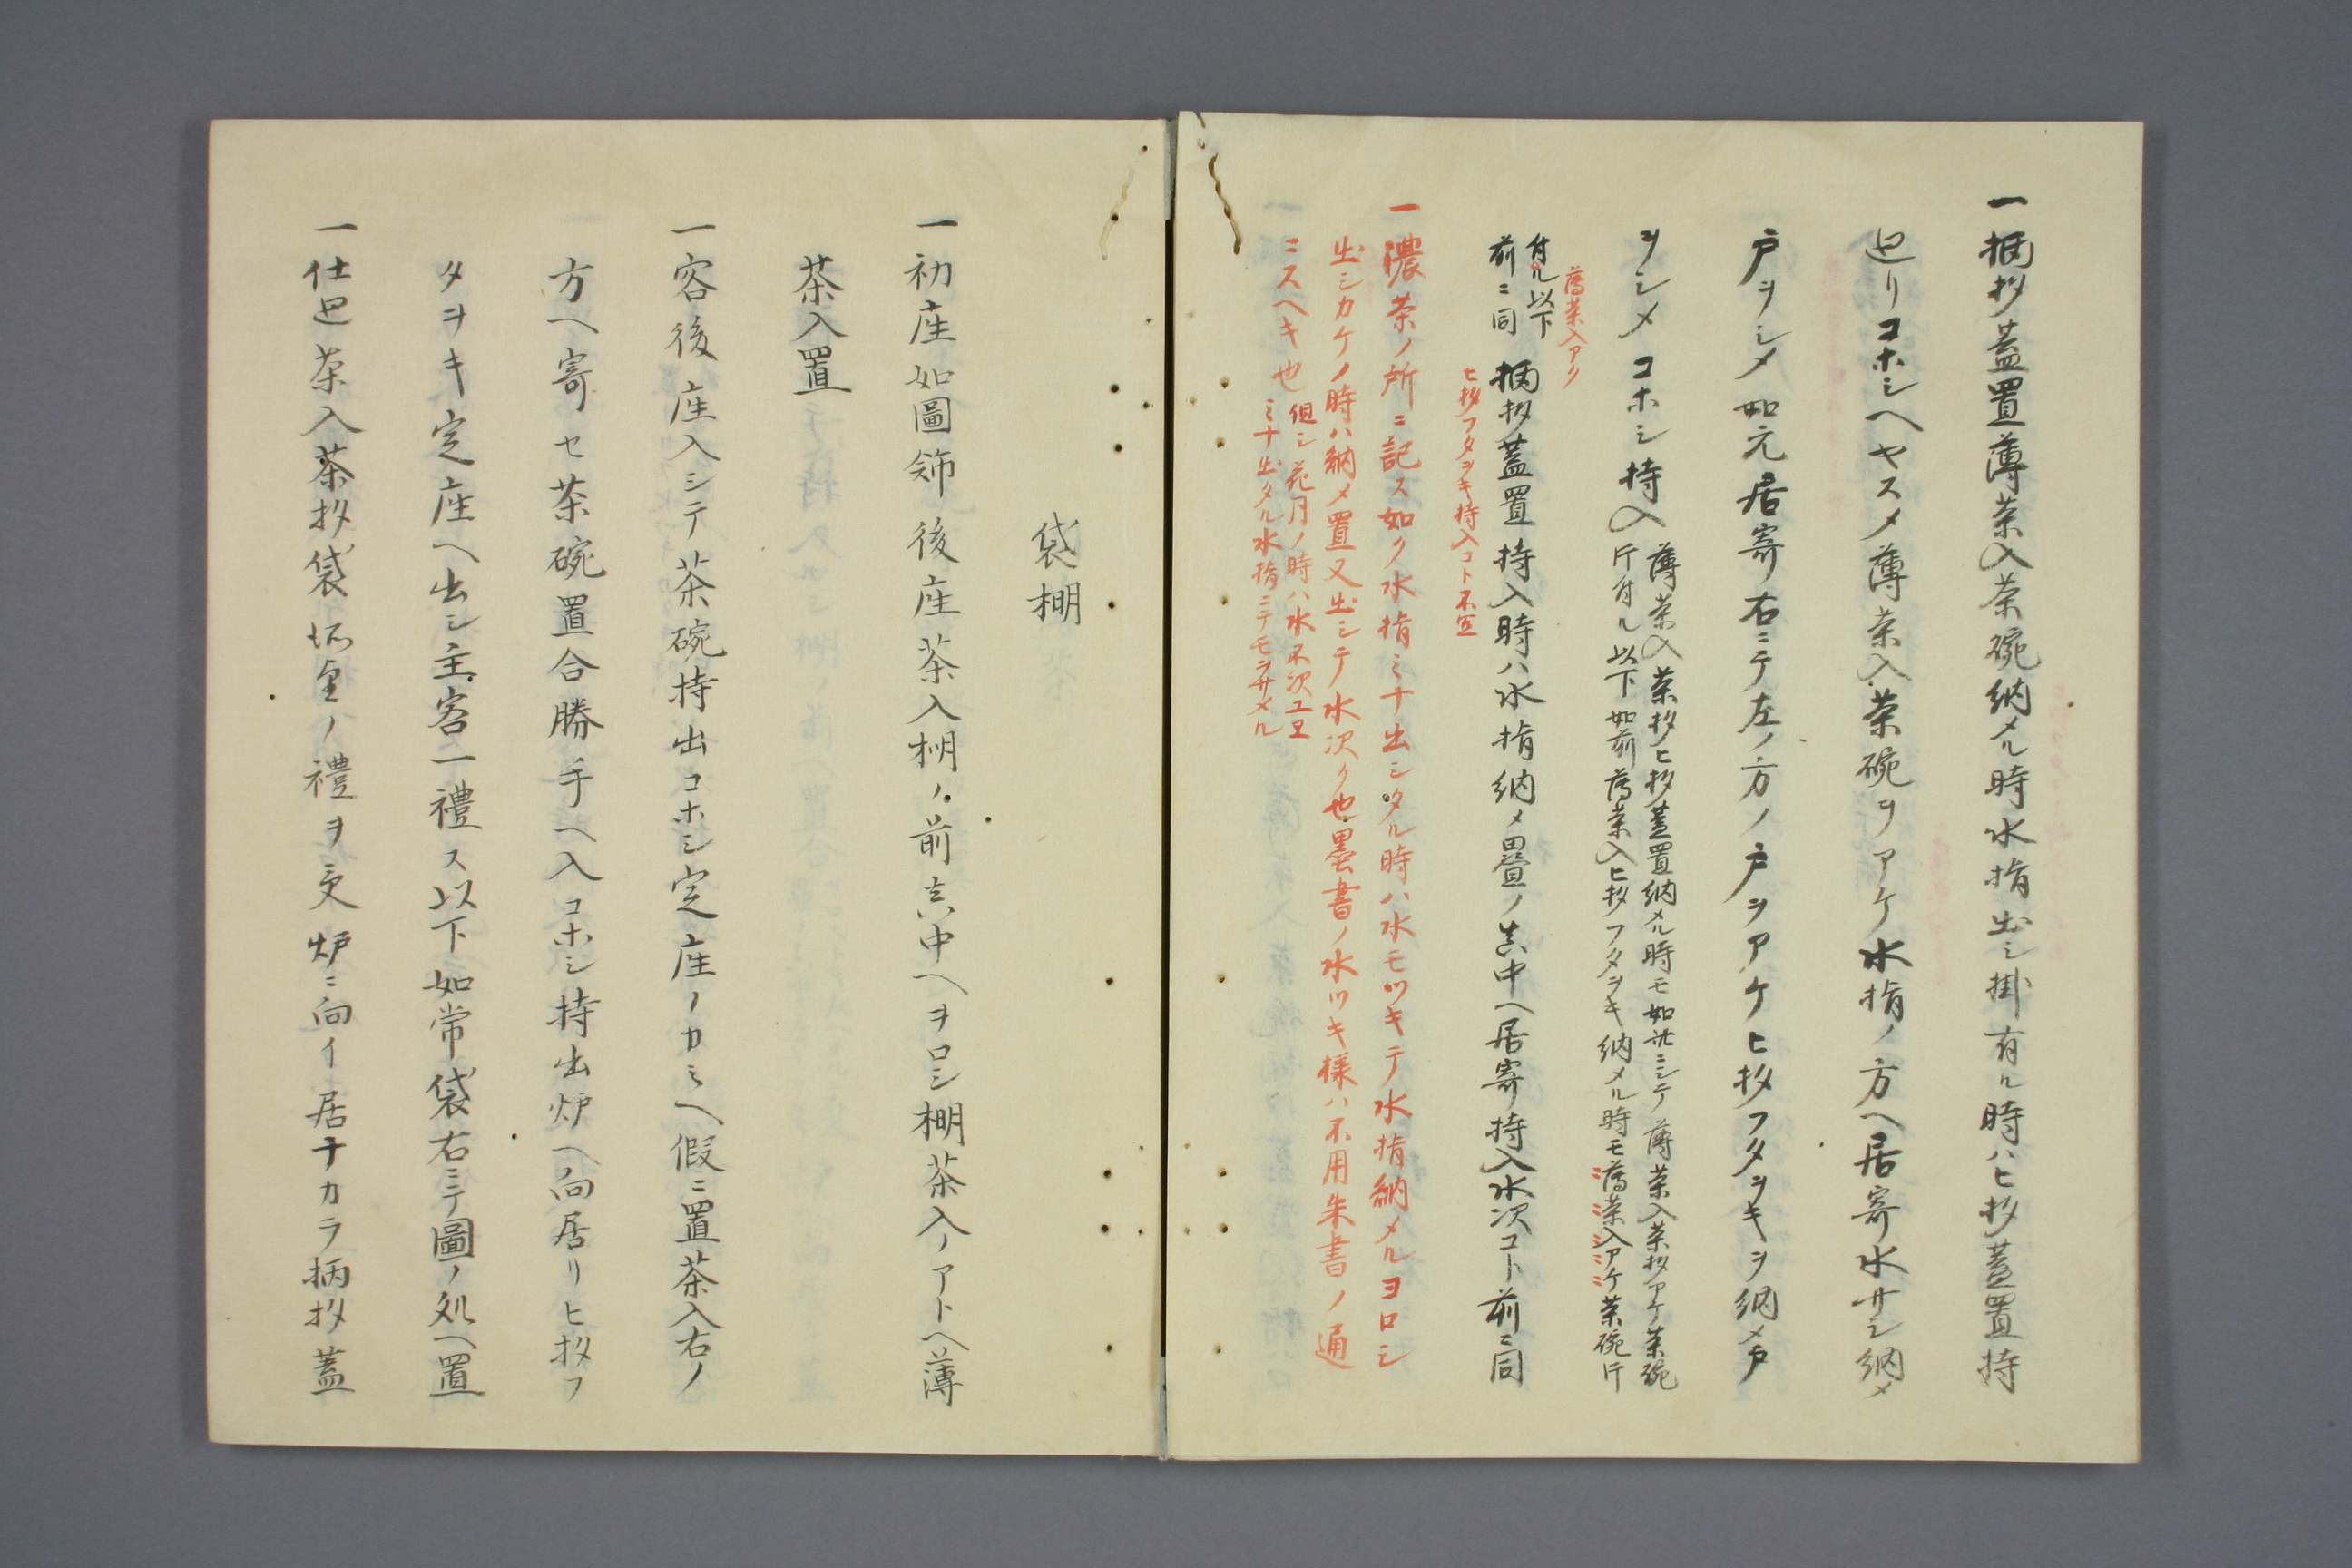 一柄杓蓋置薄茶入茶碗納メル時水指出シ掛有ル時ハヒ杓蓋置持
廻リコホシヘヤスメ薄茶入茶碗ヲアケ水指ノ方ヘ居寄水サシ納メ
戸ヲシメ如元居寄右ニテ左ノ方ノ戸ヲアケヒ杓フタヲキヲ納メ戸
ヲシメコホシ持入
薄茶入茶杓ヒ杓蓋置納メル時モ如此ニシテ薄茶入茶杓アケ茶碗
斤付ル以下如前薄茶入ヒ杓フタヲキ納メル時モ薄茶入アケ茶碗斤
薄茶入アケ
付ル以下
前ニ同
柄杓蓋置持入時ハ水指納メ畳ノ真中ヘ居寄持入水次コト前ニ同
ヒ杓フタヲキ持入コト不宜
一濃茶ノ所ニ記ス如ク水指ミナ出シタル時ハ水モツキテ水指納メルヨロシ
出シカケノ時ハ納メ置又出シテ水次ク也墨書ノ水ツキ様ハ不用朱書ノ通
ニスヘキ也
但シ花月ノ時ハ水不次ユヱ
ミナ出タル水指ニテモヲサメル
袋棚
一初座如圖飾後座茶入棚ノ前真中ヘヲロシ棚茶入ノアトヘ薄
茶入置
一客後座入シテ茶碗持出コホシ定座ノカミヘ假ニ置茶入右ノ
方ヘ寄セ茶碗置合勝手ヘ入コホシ持出炉ヘ向居リヒ杓フ
タヲキ定座ヘ出シ主客一禮ス以下如常袋右ニテ圖ノ処ヘ置
一仕廻茶入茶杓袋拝見ノ禮ヲ受炉ニ向イ居ナカラ柄杓蓋